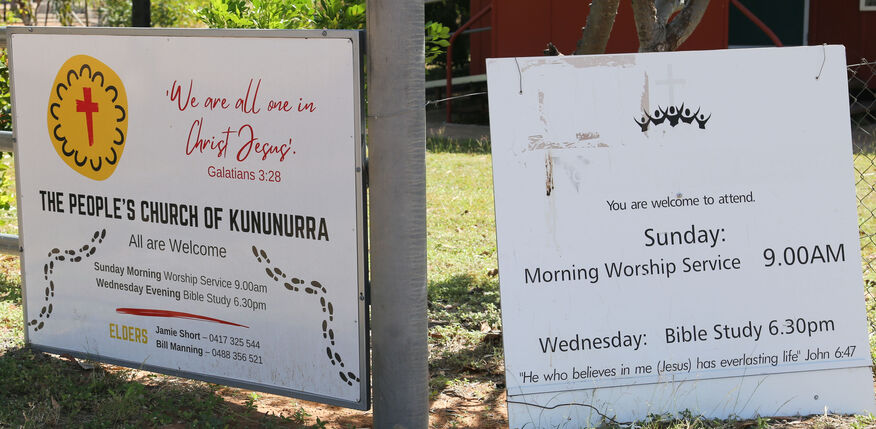 'We are all one in
Christ Jesus'.
Galatians 3:28
THE PEOPLE'S CHURCH OF KUNUNURRA
All are Welcome
Sunday Morning Worship Service 9.00am
Wednesday Evening Bible Study 6.30pm
ELDERS
Jamie Short – 0417 325 544
Bill Manning – 0488 356 521
You are welcome to attend.
Sunday:
Morning Worship Service 9.00AM
Wednesday: Bible Study 6.30pm
"He who believes in me (Jesus) has everlasting life" John 6:47